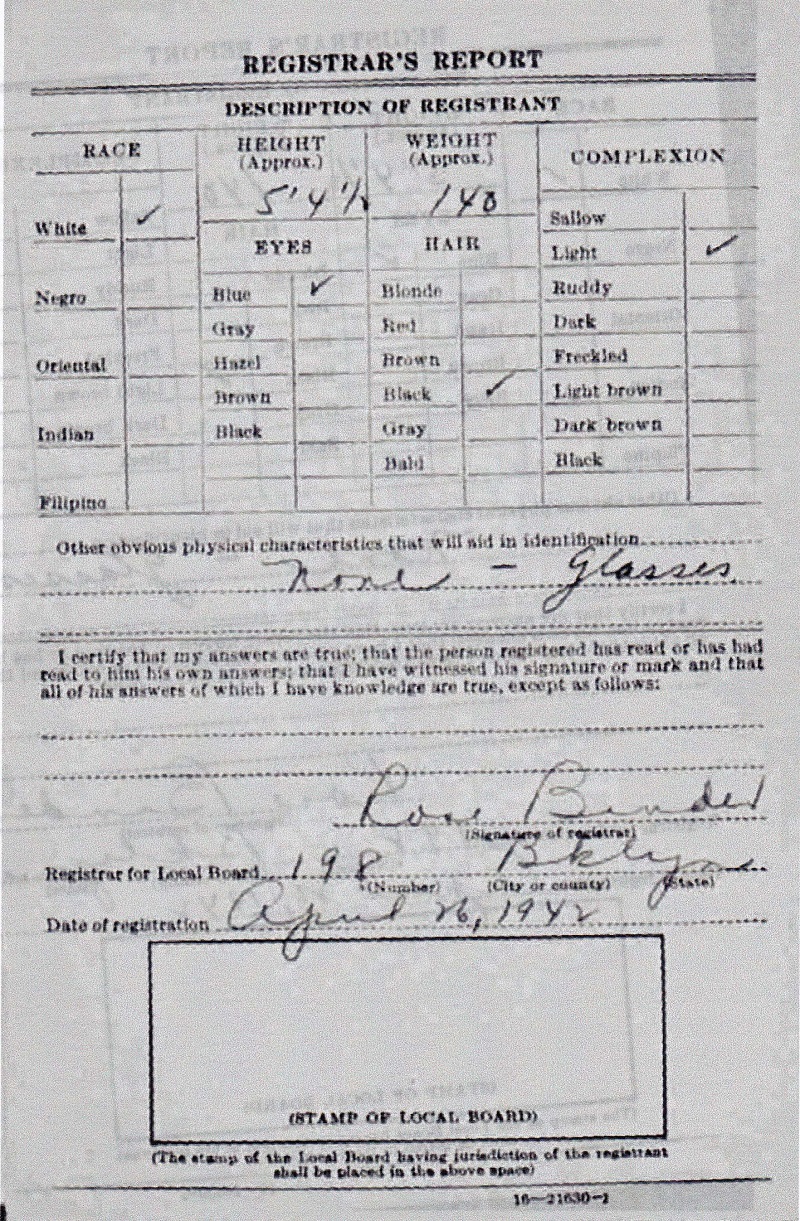 REGISTRAR'S REPORT
DESCRIPTION OF REGISTRANT
RACE
HEIGHT
(Approx.)
WEIGHT
(Approx.)
COMPLEXION
5' 4½
140
White ✓
Sallow
EYES
HAIR
Light ✓
Negro
Blue ✓
Blonde
Ruddy
Gray
Red
Dark
Oriental
Hazel
Brown
Freckled
Brown
Black ✓
Light brown
Indian
Black
Gray
Dark brown
Bald
Black
Filipino
Other obvious physical characteristics that will aid in identification
None - Glasses
I certify that my answers are true; that the person registered has read or has had
read to him his own answers; that I have witnessed his signature or mark and that
all of his answers of which I have knowledge are true, except as follows:
Rose Bender
(Signature of registrar)
Registrar for Local Board 198 Bklyn
(Number) (City or county) (State)
Date of registration April 26, 1942
(STAMP OF LOCAL BOARD)
(The stamp of the Local Board having jurisdiction of the registrant
shall be placed in the above space)
16—21630-1